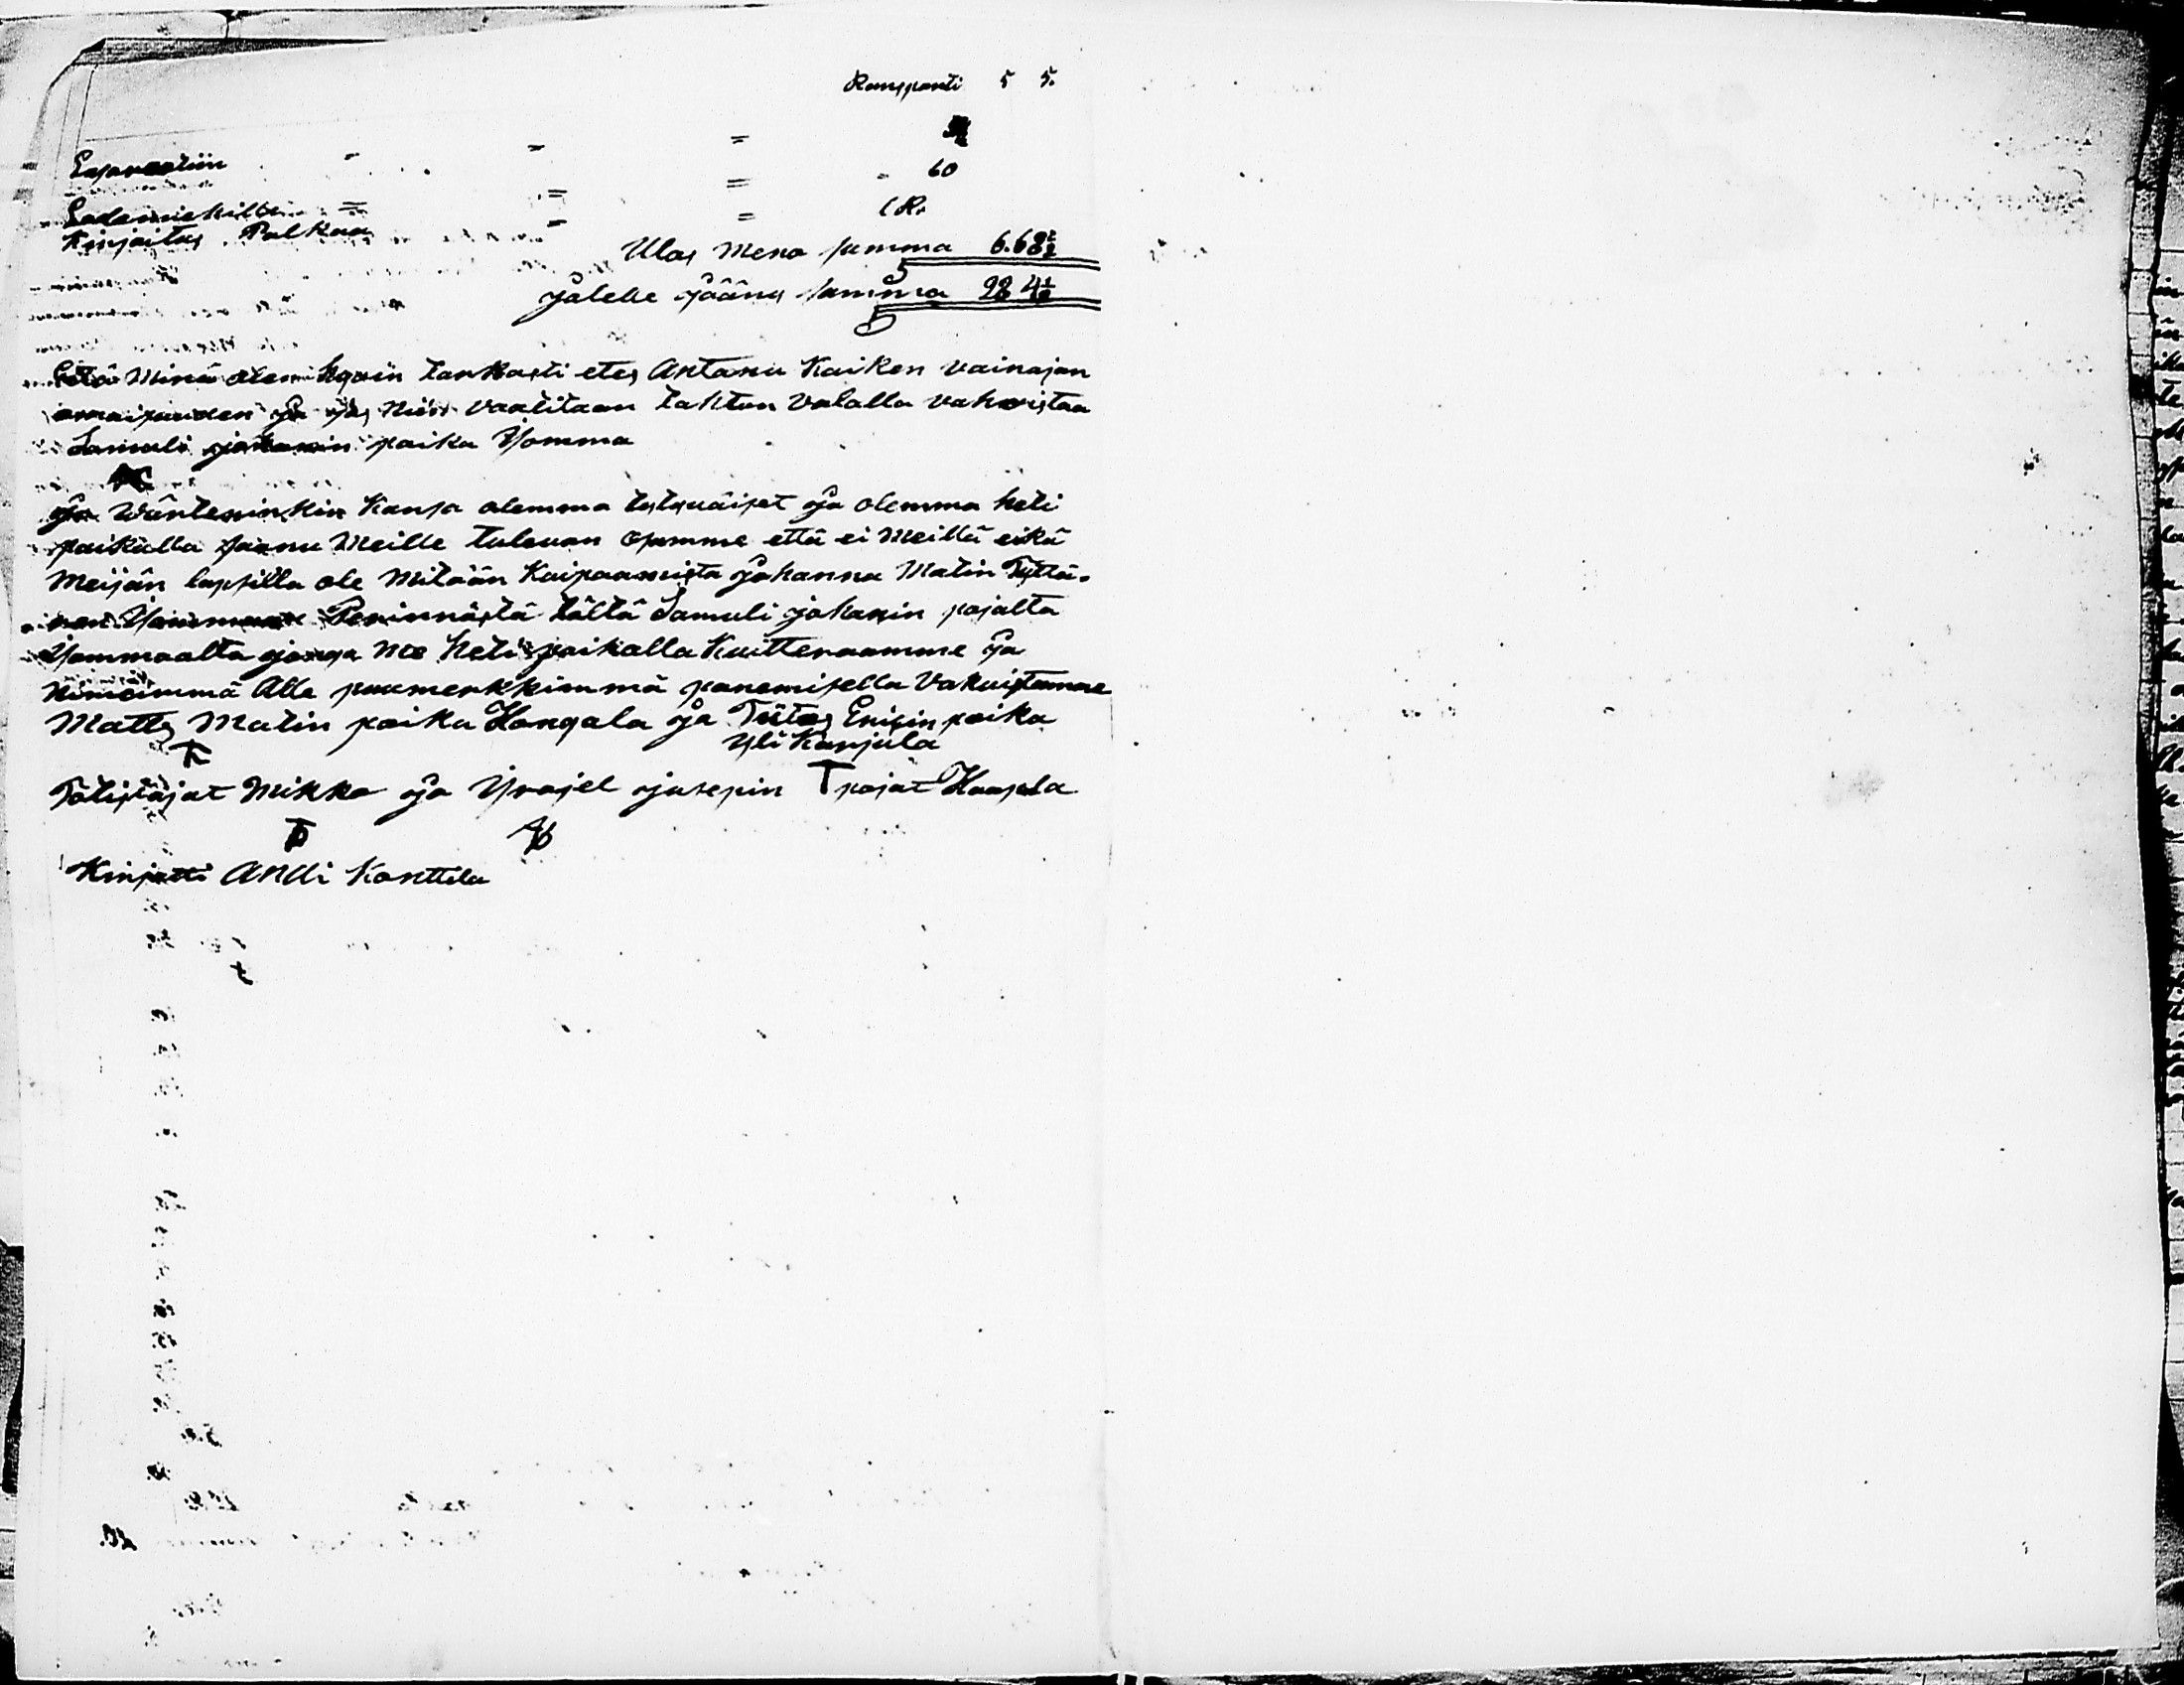 Ransporti 5 5.
Exsaraatiin - = =
60
Lademiehille = = =
1 Ru
Kirjoitus Palkaa - =
Ulos meno summa 6.68½
Jälelle jääny summa 28 4½
Että Minä olen hyvin tarkasti etes Antanu Kaiken vainajan
omaisuuden ja jos niin vaatitaan tahton valalla vahvistaa
Samuli johanin poika Yomma
ja Wäntesinkin Kansa olemma tytyväiset ja olemma heti
paikalla saanu Meille tulevan osamme että ei Meillä eikä
Meijän lapsilla ole Mitään Kaipaamista Johanna Matin Tyttä-
ren Yomman Perinnästä tältä Samuli johanin pojalta
Yommaalta jonga Me heti paikalla Kuitteraamme ja
Nimeimmä Alle puumerkkimmä panemisella Vakuistamme
Matts Matin poika Hangala ja Tiitus Erikin poika
Yli Karjula
Totistajat Mikko ja Yrajel jusepin pojat Haapala
Kirjotti Andi Konttila